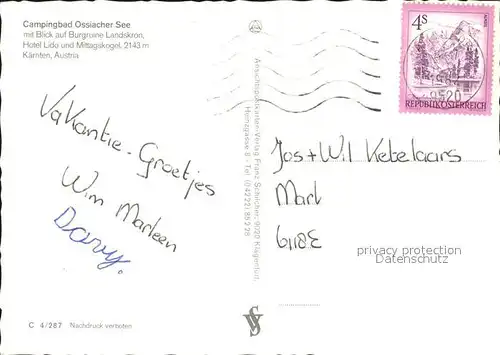 Campingbad Ossiacher See
mit Blick auf Burgruine Landskron,
Hotel Lido und Mittagskogel, 2143 m
Kärnten, Austria
Vakantie-Groetjes
Wim Marleen
Davy.
C 4/287 Nachdruck verboten
Ansichtspostkarten-Verlag Franz Schilcher, 9020 Klagenfurt,
Henzgasse 8 - Tel. (0 42 22) 85 2 28
4S
REPUBLIK ÖSTERREICH
9520
Jos + Wil Ketelaars
privacy protection
Datenschutz